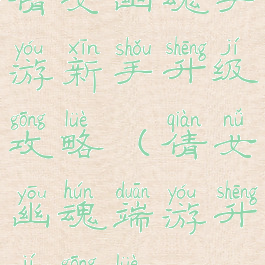 倩女幽魂手
yóu xīn shǒu shēng jí
游新手升级
gōng lüè qiàn nǚ
攻略（倩女
yōu hún duān yóu shēng
幽魂端游升
jí gōng lüè